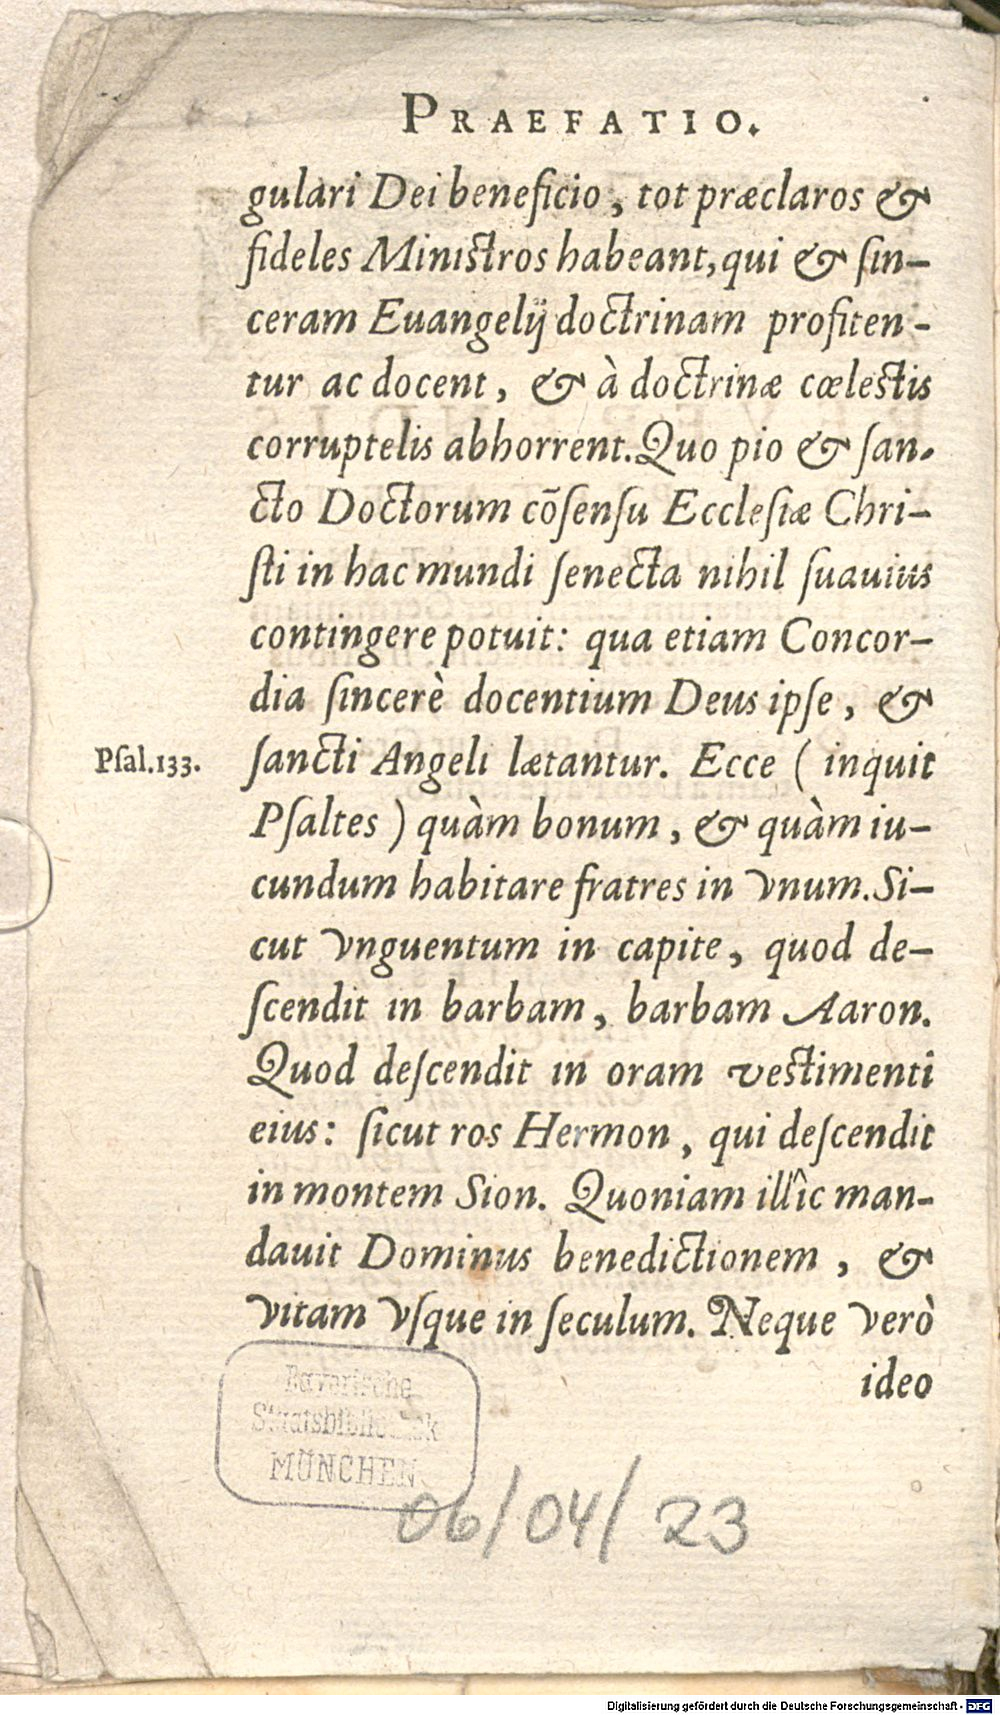 PRAEFATIO.
gulari Dei beneficio, tot præclaros &
fideles Ministros habeant, qui & ſin-
ceram Euangelij doctrinam profiten-
tur ac docent, & à doctrinæ cœlestis
corruptelis abhorrent. Quo pio & ſan-
cto Doctorum cõſenſu Eccleſiæ Chri-
ſti in hac mundi ſenecta nihil ſuauius
contingere potuit: qua etiam Concor-
dia ſincerè docentium Deus ipſe, &
Pſal.133.
ſancti Angeli lætantur. Ecce ( inquit
Pſaltes ) quàm bonum, & quàm iu-
cundum habitare fratres in vnum. Si-
cut vnguentum in capite, quod de-
ſcendit in barbam, barbam Aaron.
Quod deſcendit in oram vestimenti
eius: ſicut ros Hermon, qui deſcendit
in montem Sion. Quoniam illîc man-
dauit Dominus benedictionem, &
vitam vſque in ſeculum. Neque verò
ideo
Bayerische
Staatsbibliothek
MÜNCHEN
06/04/23
Digitalisierung gefördert durch die Deutsche Forschungsgemeinschaft - DFG